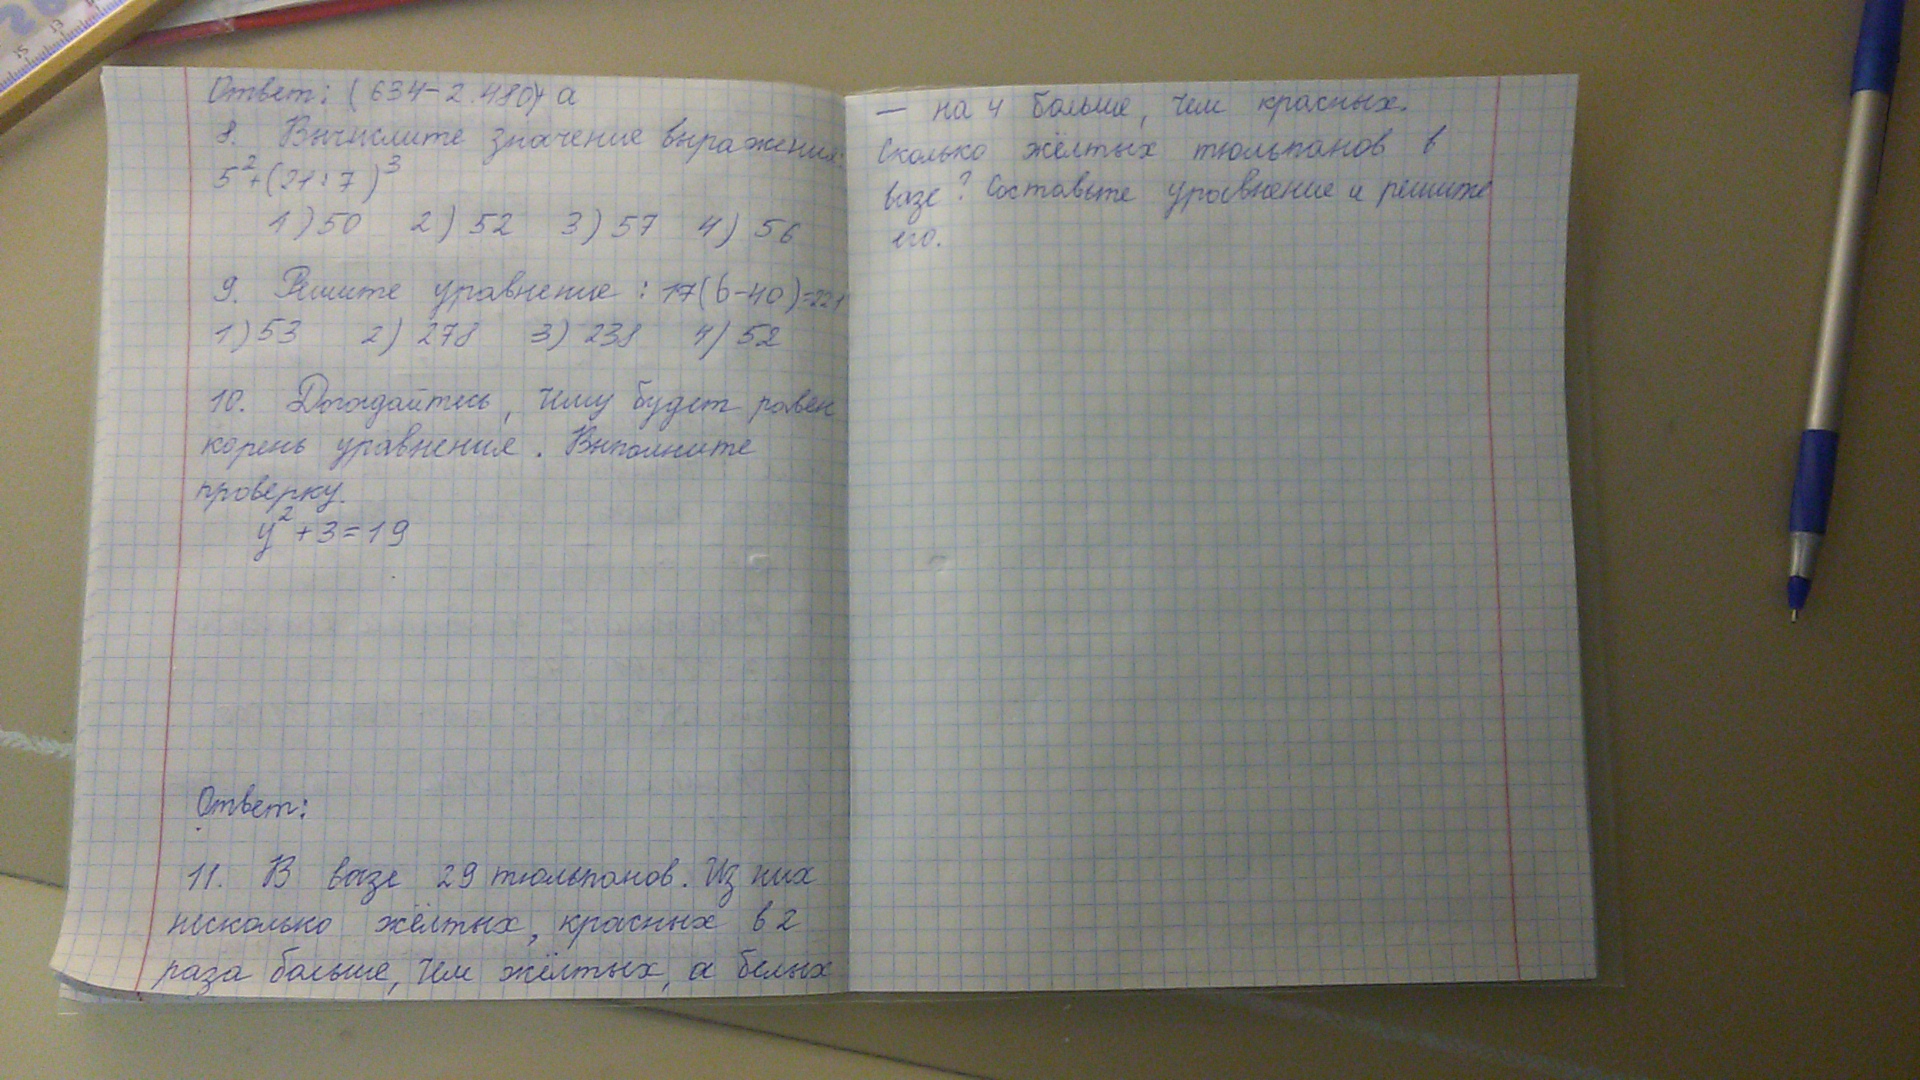 Ответ: (634-2.480)+a
8. Вычислите значение выражения:
5²+(21:7)³
1) 50 2) 52 3) 57 4) 56
9. Решите уравнение: 17(b-40)=221
1) 53 2) 278 3) 238 4) 52
10. Догадайтесь, чему будет равен
корень уравнения. Выполните
проверку.
y²+3=19
Ответ:
11. В вазе 29 тюльпанов. Из них
несколько жёлтых, красных в 2
раза больше, чем жёлтых, а белых
— на 4 больше, чем красных.
Сколько жёлтых тюльпанов в
вазе? Составьте уравнение и решите
его.